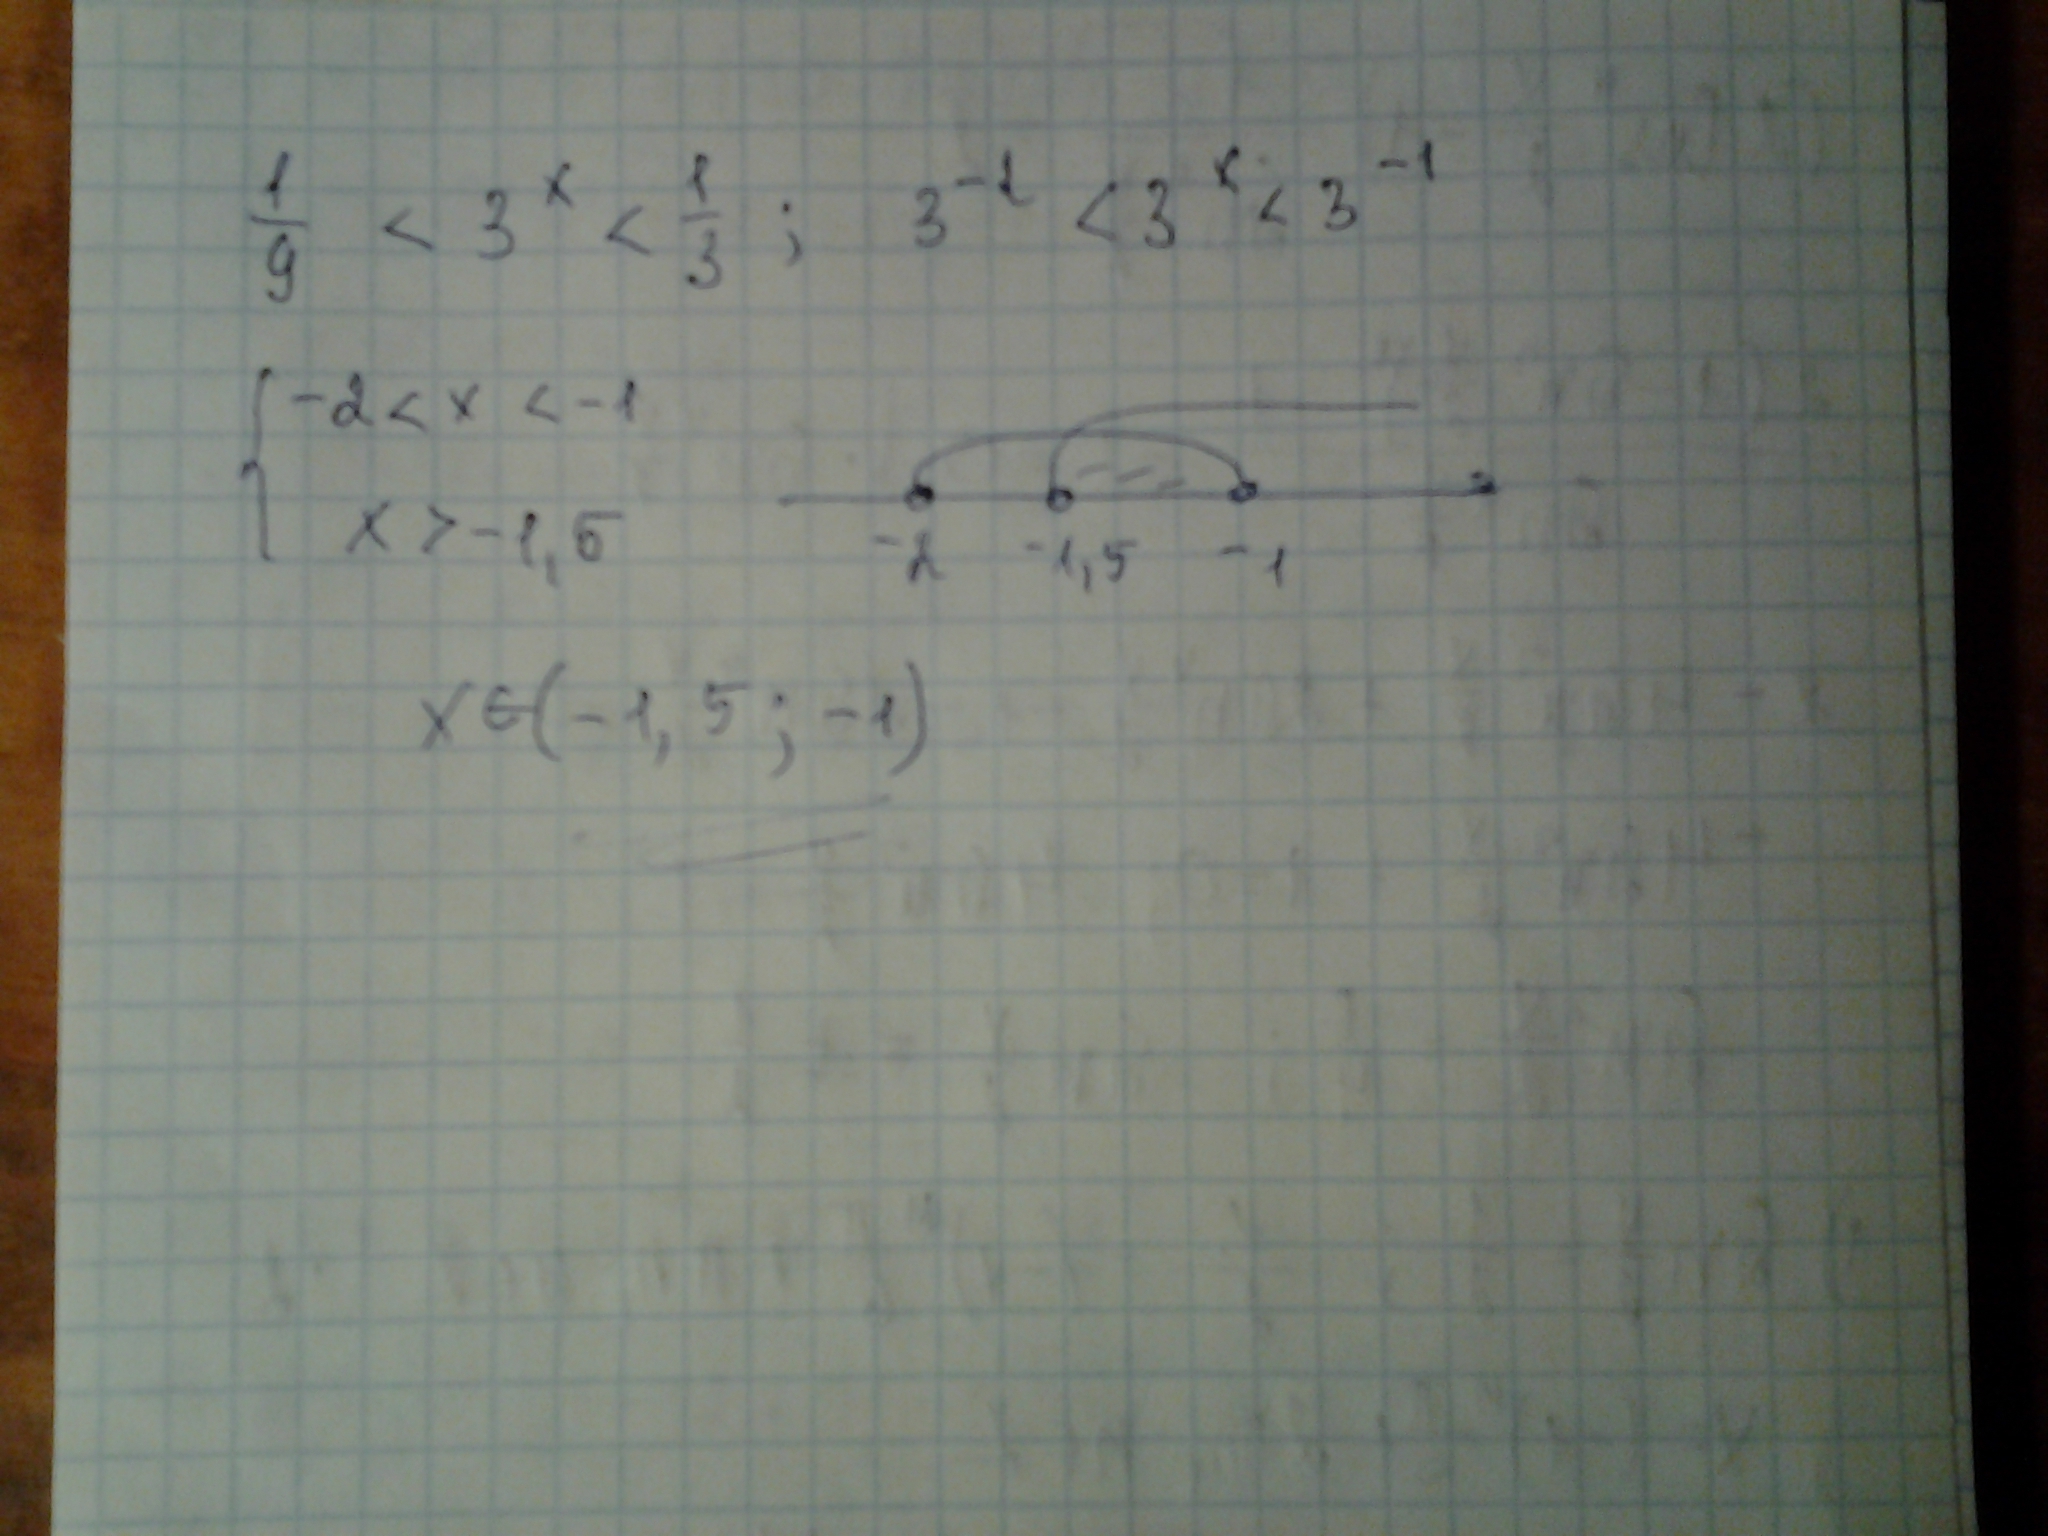 1/9 < 3^x < 1/3 ; 3^-2 < 3^x < 3^-1
{ -2 < x < -1
x > -1,5
-2 -1,5 -1
x ∈ (-1,5 ; -1)